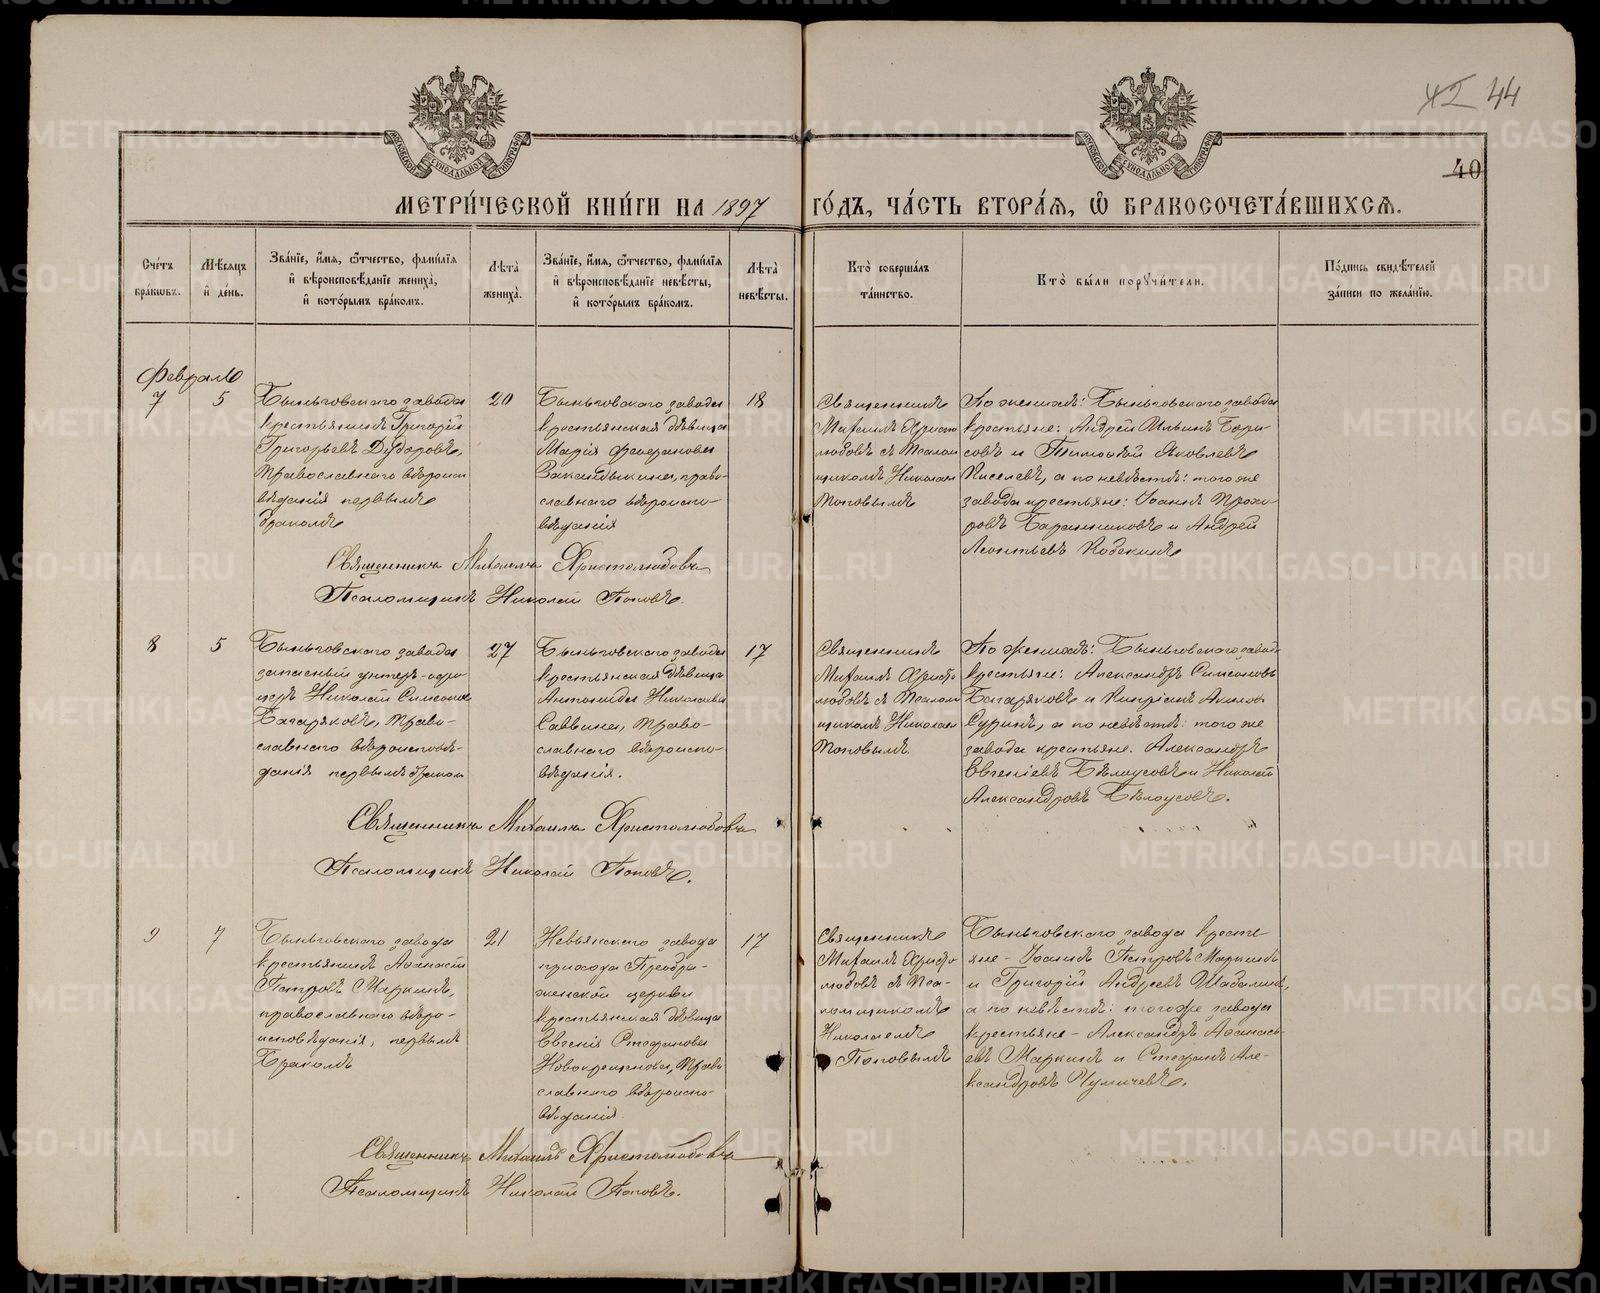 XI 44
40
МЕТРИ́ЧЕСКОЙ КНИ́ГИ НА 1897 ГО́ДЪ, ЧА́СТЬ ВТОРА́Ѧ, Ѡ҆ БРАКОСОЧЕТА́ВШИХСѦ.
Сче́тъ бра́кѡвъ.
Мѣ́сѧцъ и҆ де́нь.
Зва́нїе, и҆́мѧ, ѻ҆́тчество, фамѝлїѧ
и҆ вѣроисповѣ́данїе жениха̀,
и҆ кото́рымъ бра́комъ.
Лѣ́та жениха̀.
Зва́нїе, и҆́мѧ, ѻ҆́тчество, фамѝлїѧ
и҆ вѣроисповѣ́данїе невѣ́сты,
и҆ кото́рымъ бра́комъ.
Лѣ́та невѣ́сты.
Кто̀ соверша́лъ
та́инство.
Кто̀ бы́ли порꙋчи́тели.
По́дпись свидѣ́телей
за́писи по жела́нїю.
Февраль
7
5
Быньговскаго завода
крестьянинъ Григорій
Григорьевъ Дудоровъ,
православнаго вѣроиспо
вѣданія первымъ
бракомъ
20
Быньговскаго завода
крестьянская дѣвица
Марія
право-
славнаго вѣроиспо-
вѣданія
18
Священникъ
Михаилъ Христо
любовъ съ Псалом
щикомъ Николаем
Поповымъ
По женихѣ: Быньговскаго завода
крестьяне: Андрей Ильинъ Бори-
совъ и Тимофей Яковлевъ
Киселевъ, а по невѣстѣ: того же
завода крестьяне: Іоаннъ Прохо-
ровъ Баранниковъ и Андрей
Леонтьевъ Кодекинъ
Священникъ Михаилъ Христолюбовъ
Псаломщикъ Николай Поповъ.
8
5
Быньговскаго завода
запасный унтеръ-офи
церъ Николай Симеонов
Багаряковъ, право-
славнаго вѣроисповѣ-
данія первымъ браком
27
Быньговскаго завода
крестьянская дѣвица
Антонида Николаева
Саввина, право-
славнаго вѣроиспо-
вѣданія.
17
Священникъ
Михаилъ Христо
любовъ съ Псалом
щикомъ Николаем
Поповымъ
По женихѣ: Быньговскаго завод
крестьяне: Александръ Симеоновъ
Багаряковъ и Кипріанъ
Суринъ, а по невѣстѣ: того же
завода крестьяне: Александръ
Евгеніевъ Бѣлоусовъ и Николай
Александровъ Бѣлоусовъ.
Священникъ Михаилъ Христолюбовъ
Псаломщикъ Николай Поповъ.
9
7
Быньговскаго завода
крестьянинъ Аѳанасій
Петровъ Маркинъ,
православнаго вѣро-
исповѣданія, первымъ
бракомъ
21
Невьянскаго завода
прихода Преобра-
женской церкви
крестьянская дѣвица
Евгенія Стефанова
Новокрещенова, право
славнаго вѣроиспо-
вѣданія
17
Священникъ
Михаилъ Христо
любовъ съ Пса-
ломщикомъ
Николаемъ
Поповымъ
Быньговскаго завода кресть-
яне - Іоаннъ Петровъ Маркинъ
и Григорій Андреевъ Шабалинъ,
а по невѣстѣ: того же завода
крестьяне - Александръ Аѳанась-
евъ Маркинъ и Стефанъ Але-
ксандровъ Чумичевъ.
Священникъ Михаилъ Христолюбовъ
Псаломщикъ Николай Поповъ.